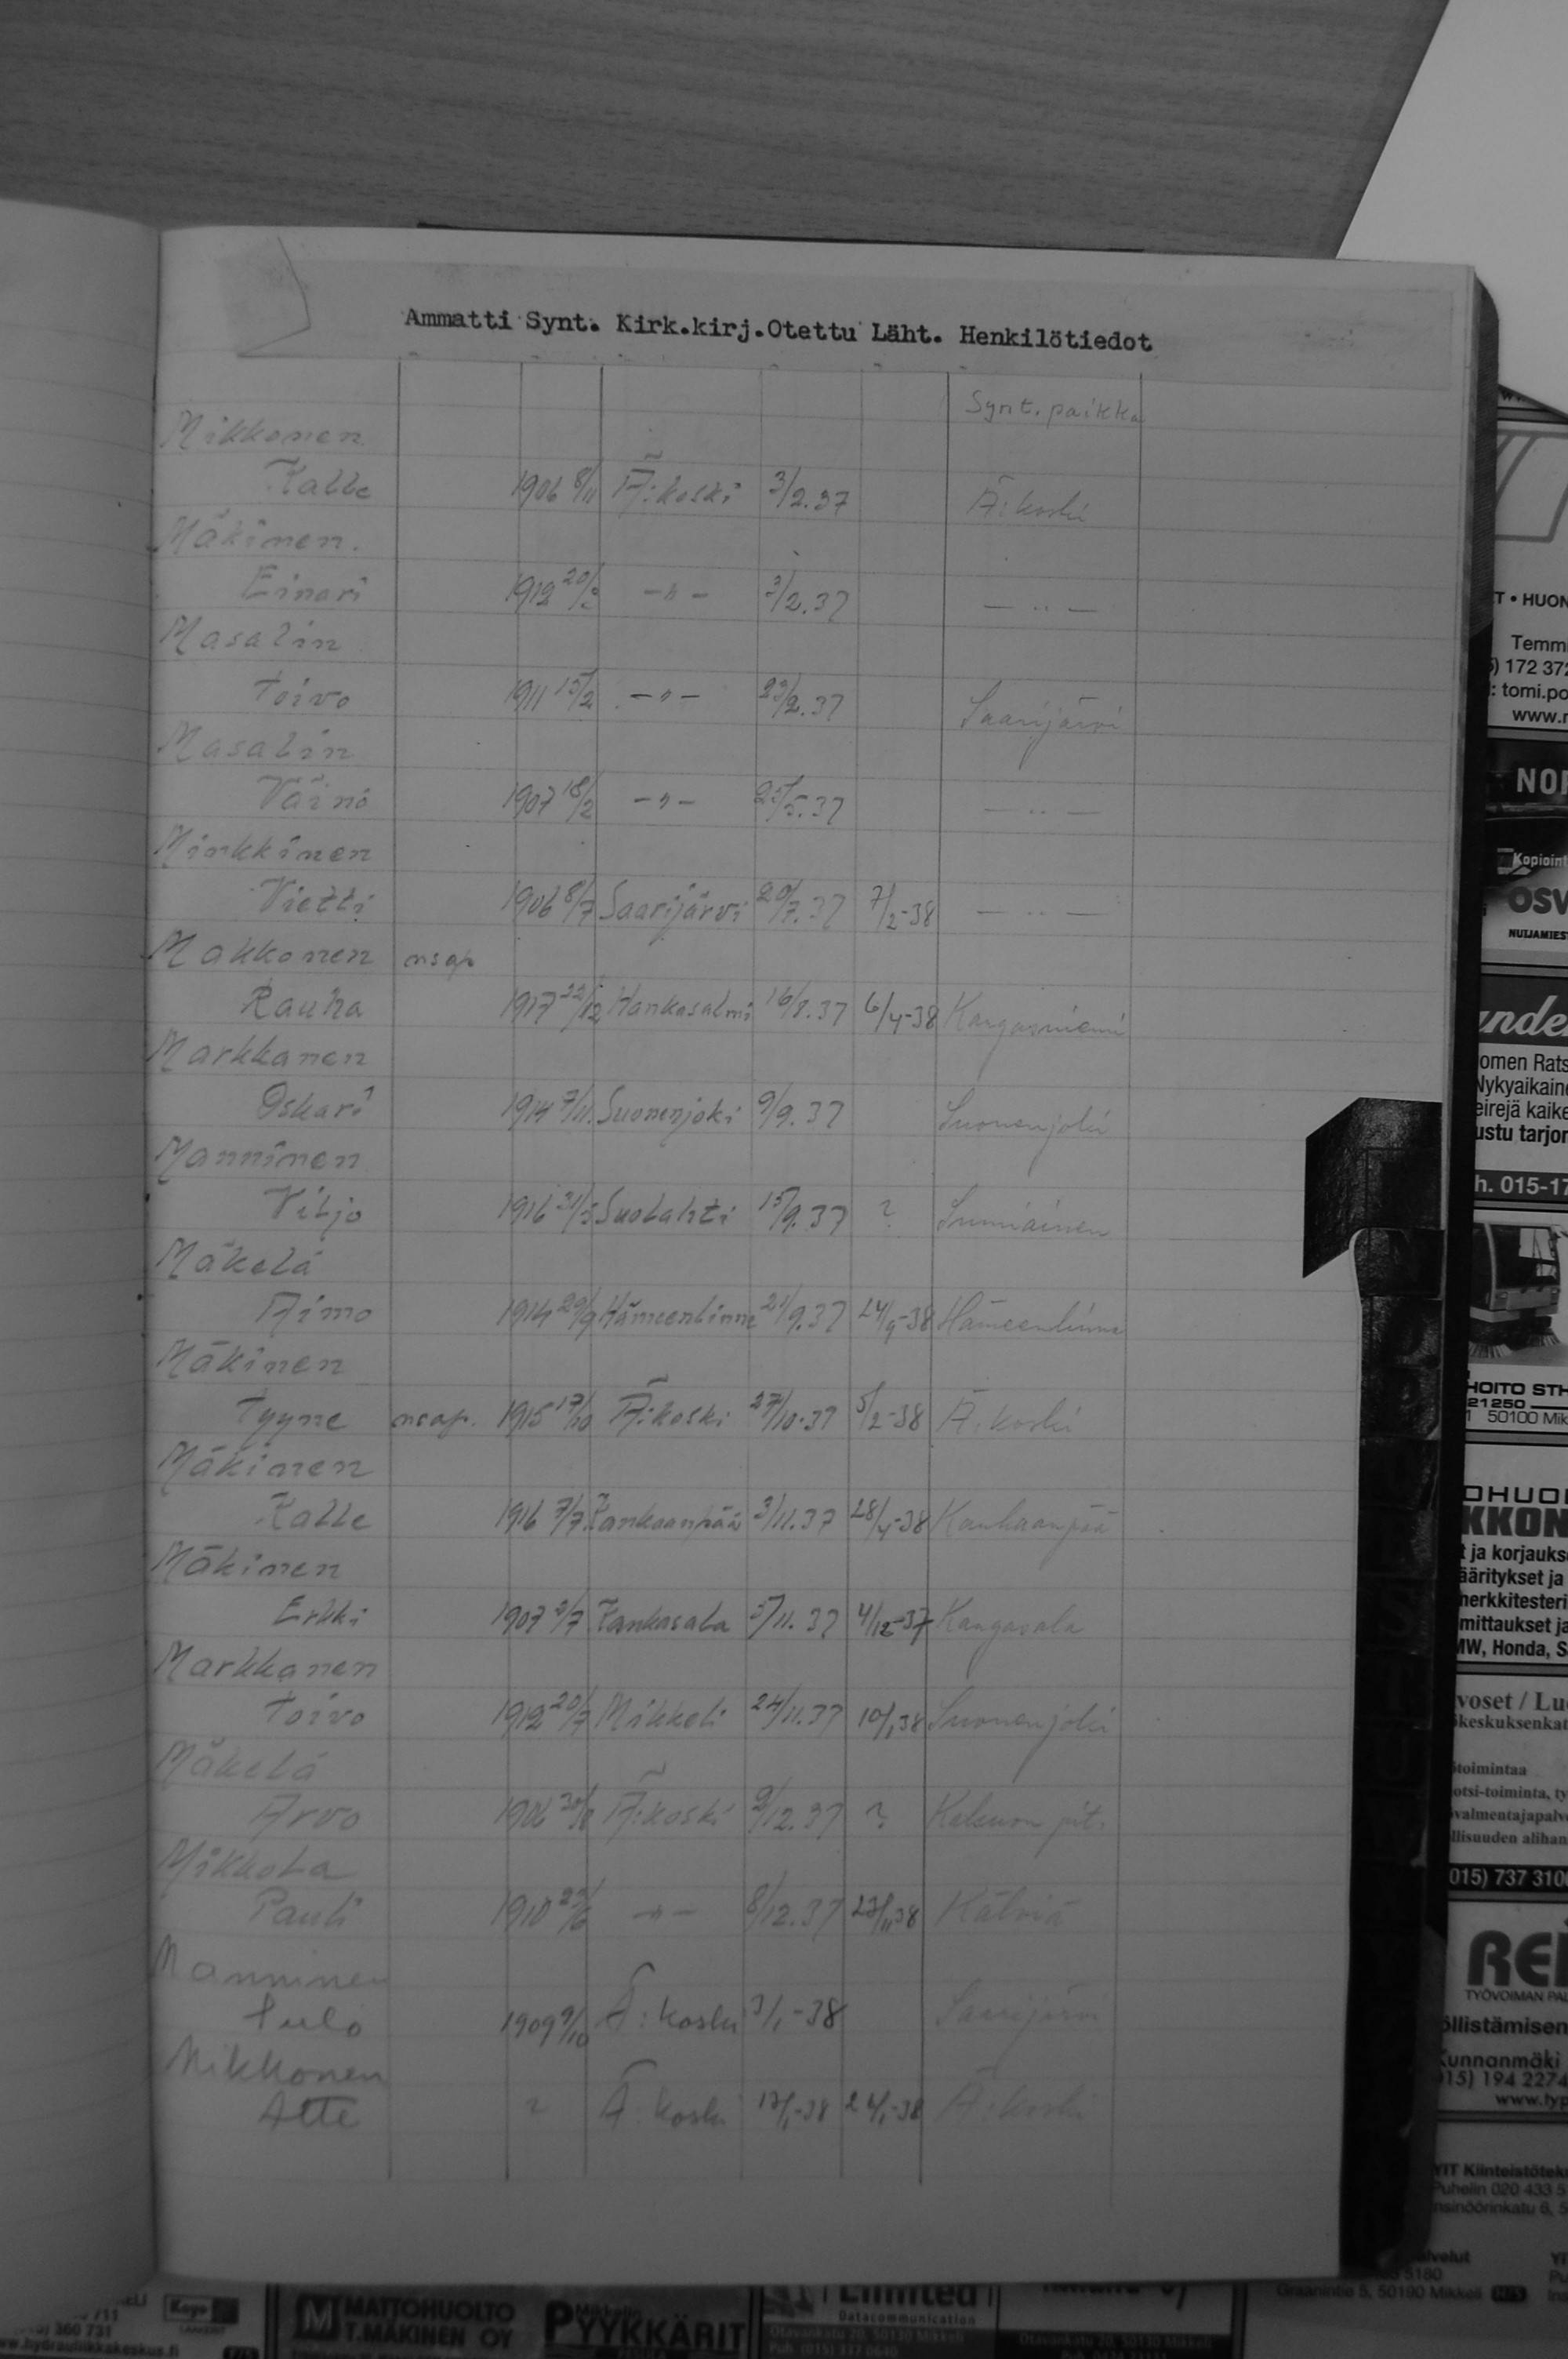 Ammatti Synt. Kirk.kirj. Otettu Läht. Henkilötiedot
Synt. paikka
Mikkonen
Kalle 1906 8/11 Ä:koski 3/2.37 Ä:koski
Mäkinen.
Einari 1912 20/2 -"- 3/2.37 -"-
Masalin
Toivo 1911 15/2 -"- 23/2.37 Saarijärvi
Masalin
Väinö 1907 18/2 -"- 25/5.37 -"-
Minkkinen
Vietti 1906 8/7 Saarijärvi 20/7.37 7/2-38 -"-
Makkonen nsap
Rauha 1917 22/12 Hankasalmi 16/8.37 6/4-38 Kangasniemi
Markkanen
Oskari 1914 7/11. Suonenjoki 9/9.37 Suonenjoki
Manninen
Viljo 1916 31/5 Suolahti 15/9.37 ? Sumiainen
Mäkelä
Aimo 1914 29/9 Hämeenlinna 21/9.37 24/9-38 Hämeenlinna
Mäkinen
Tyyne nsap. 1915 17/10 Ä:koski 27/10.37 5/2-38 Ä:koski
Mäkinen
Kalle 1916 7/7. Kankaanpää 3/11.37 28/4-38 Kankaanpää
Mäkinen
Erkki 1907 2/7 Kankasala 5/11.37 4/12-37 Kangasala
Markkanen
Toivo 1912 20/7 Mikkeli 24/11.37 10/1 38 Suonenjoki
Mäkelä
Arvo 1906 Ä:koski 9/12.37 ? pit.
Mikkola
Pauli 1910 23/6 -"- 8/12.37 23/11 38 Kälviä
Manninen
Tulo 1909 9/10 Ä:koski 3/1-38 Saarijärvi
Mikkonen
Atte ? Ä:koski 17/1-38 24/1-38 Ä:koski
T • HUON
Temm
) 172 372
: tomi.po
www.r
Kopioint
NUIJAMIES
omen Rats
Nykyaikaine
eirejä kaike
ustu tarjon
h. 015-17
HOITO STH
21250
50100 Mik
OHUOI
KKON
t ja korjauks
ääritykset ja
merkkitesteri
mittaukset ja
MW, Honda, S
voset / Lu
keskuksenkat
toimintaa
otsi-toiminta, ty
valmentajapalv
llisuuden alihan
015) 737 310
REI
TYÖVOIMAN PAL
öllistämisen
Kunnanmäki
15) 194 2274
www.typ
YIT Kiinteistötek
Puhelin 020 433 5
nsinöörinkatu 6, 5
alvelut
5180
Graanintie 5, 50190 Mikkeli
) 360 731
w.hydrauliikkakeskus.fi
MATTOHUOLTO
T.MÄKINEN OY
Mikkelin
PYYKKÄRIT
Limited
Datacommunication
Otavankatu 20, 50130 Mikkeli
Puh. (015) 337 0640
Otavankatu 20, 50130 Mikkeli